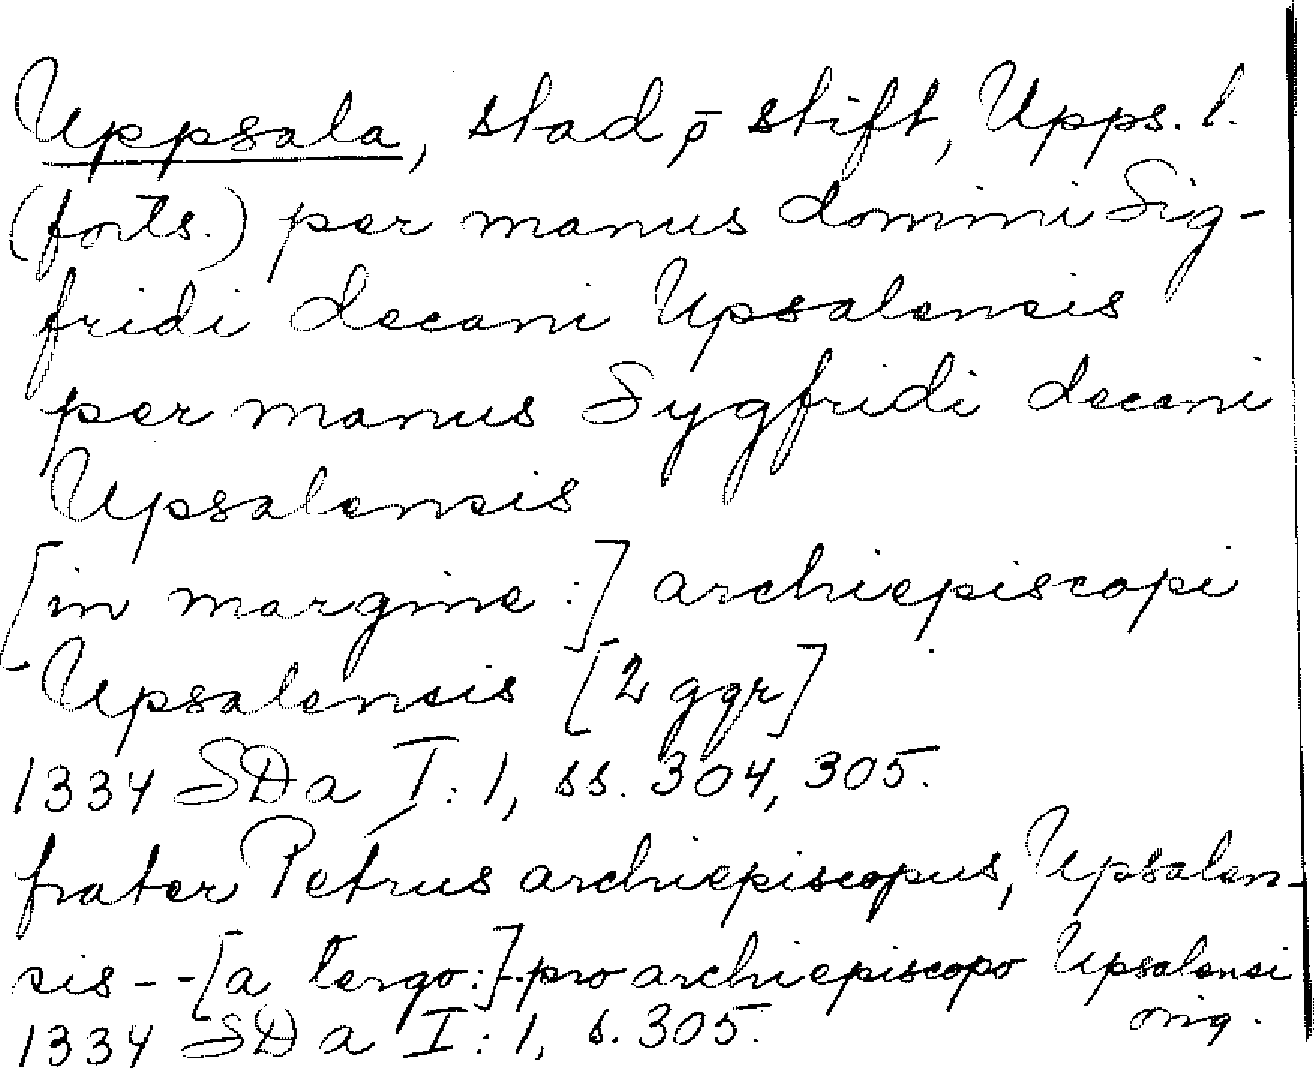 Uppsala, stad o stift, Upps. l.
(forts.) per manus domini Sig-
fridi decani Upsalensis
per manus Sygfridi decani
Upsalensis
[in margine:] archiepiscopi
Upsalensis [2 ggr]
1334 SDa I:1, ss. 304, 305.
frater Petrus archiepiscopus, Upsalen-
sis - - [a tergo:] - pro archiepiscopo Upsalensi
1334 SDa I:1, s. 305. orig.